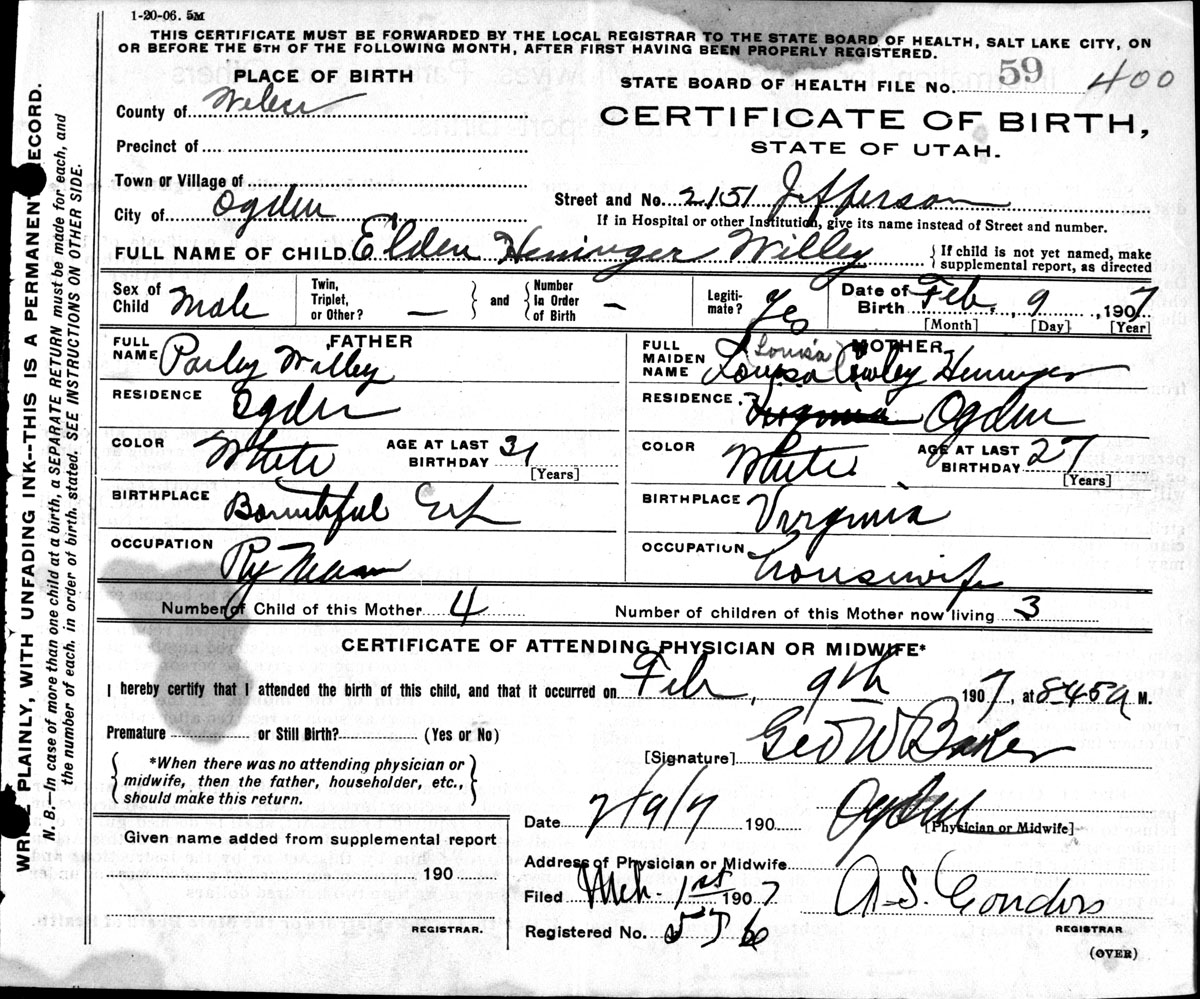 1-20-06. 5M
THIS CERTIFICATE MUST BE FORWARDED BY THE LOCAL REGISTRAR TO THE STATE BOARD OF HEALTH, SALT LAKE CITY, ON
OR BEFORE THE 5TH OF THE FOLLOWING MONTH, AFTER FIRST HAVING BEEN PROPERLY REGISTERED.
PLACE OF BIRTH
STATE BOARD OF HEALTH FILE NO. 59 400
County of Weber
CERTIFICATE OF BIRTH,
Precinct of
STATE OF UTAH.
Town or Village of
Street and No. 2151 Jefferson
City of Ogden
If in Hospital or other Institution, give its name instead of Street and number.
FULL NAME OF CHILD Elden Heninger Willey
{ If child is not yet named, make
supplemental report, as directed
Sex of Child Male
Twin, Triplet, or Other? — } and { Number In Order of Birth —
Legiti- mate? Yes
Date of Birth Feb. 9, 1907
[Month] [Day] [Year]
FATHER
FULL NAME Parley Willey
RESIDENCE Ogden
COLOR White AGE AT LAST BIRTHDAY 31 [Years]
BIRTHPLACE Bountiful
OCCUPATION Ry
MOTHER
FULL MAIDEN NAME Louisa (Louisa) Heninger
RESIDENCE. Virginia Ogden
COLOR White AGE AT LAST BIRTHDAY 27 [Years]
BIRTHPLACE Virginia
OCCUPATION Housewife
Number of Child of this Mother 4 Number of children of this Mother now living 3
CERTIFICATE OF ATTENDING PHYSICIAN OR MIDWIFE*
I hereby certify that I attended the birth of this child, and that it occurred on Feb, 9th 1907, at 8-45 a M.
Premature or Still Birth? (Yes or No)
[Signature] Geo W Baker
{ *When there was no attending physician or
midwife, then the father, householder, etc.,
should make this return. }
Date 2/9/7 190 Ogden
[Physician or Midwife]
Given name added from supplemental report
190
REGISTRAR.
Address of Physician or Midwife
Filed Mch. 1st 1907 A. S. Condon
Registered No. 556
REGISTRAR
(OVER)
WRITE PLAINLY, WITH UNFADING INK--THIS IS A PERMANENT RECORD.
N. B.—In case of more than one child at a birth, a SEPARATE RETURN must be made for each, and
the number of each, in order of birth, stated. SEE INSTRUCTIONS ON OTHER SIDE.